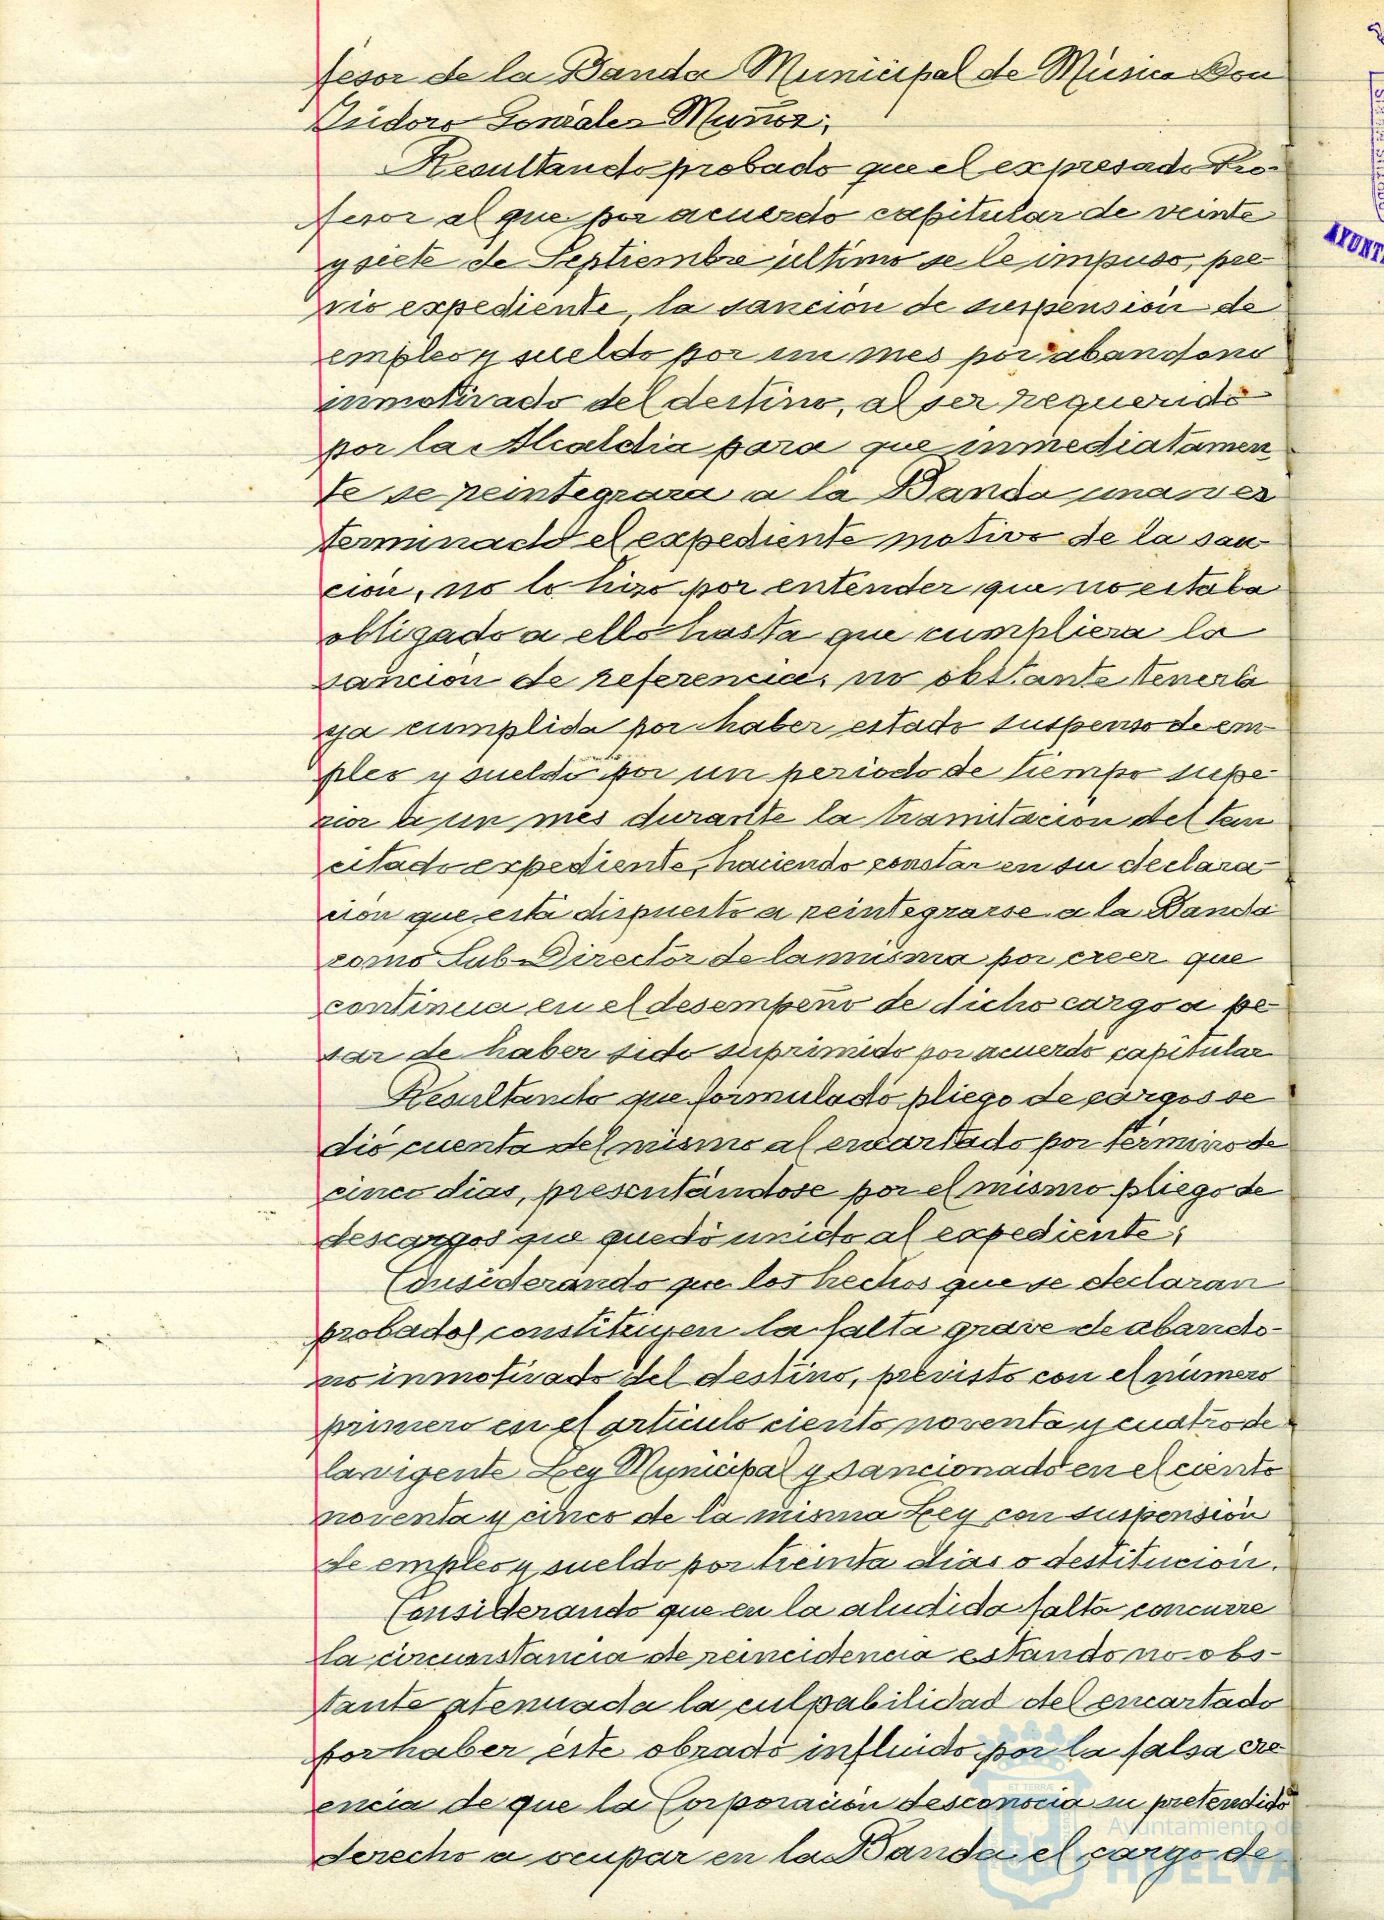 fesor de la Banda Municipal de Música Don
Isidoro González Muñoz;
Resultando probado que el expresado Pro-
fesor al que por acuerdo capitular de veinte
y siete de Septiembre último se le impuso, pre-
vio expediente, la sanción de suspensión de
empleo y sueldo por un mes por abandono
inmotivado del destino, al ser requerido
por la Alcaldia para que inmediatamen
te se reintegrara a la Banda una vez
terminado el expediente motivo de la san-
ción, no lo hizo por entender que no estaba
obligado a ello hasta que cumpliera la
sanción de referencia, no obstante tenerla
ya cumplida por haber estado suspenso de em-
pleo y sueldo por un periodo de tiempo supe-
rior a un mes durante la tramitación del tan
citado expediente, haciendo constar en su declara-
ción que está dispuesto a reintegrarse a la Banda
como Sub-Director de la misma por creer que
continua en el desempeño de dicho cargo a pe-
sar de haber sido suprimido por acuerdo capitular
Resultando que formulado pliego de cargos se
dió cuenta del mismo al encartado por término de
cinco dias, presentándose por el mismo pliego de
descargos que quedó unido al expediente;
Considerando que los hechos que se declaran
probados constituyen la falta grave de abando-
no inmotivado del destino, previsto con el número
primero en el articulo ciento noventa y cuatro de
la vigente Ley Municipal y sancionado en el ciento
noventa y cinco de la misma Ley con suspensión
de empleo y sueldo por treinta dias o destitución.
Considerando que en la aludida falta concurre
la circunstancia de reincidencia estando no obs-
tante atenuada la culpabilidad del encartado
por haber éste obrado influido por la falsa cre
encia de que la Corporación desconocia su pretendido
derecho a ocupar en la Banda el cargo de
AYUNT
ET TERRÆ
Ayuntamiento de
HUELVA